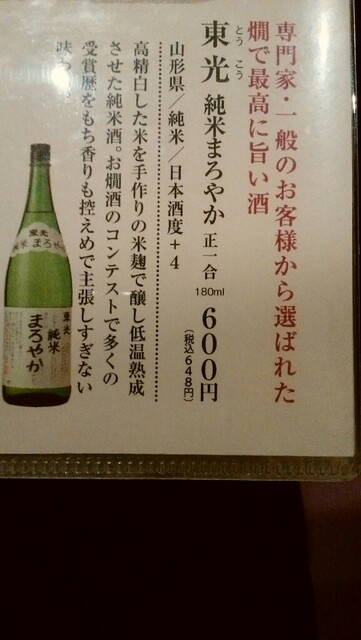 専門家・一般のお客様から選ばれた
燗で最高に旨い酒
とう こう
東光 純米まろやか 正一合 180ml 600円
(税込648円)
山形県/純米/日本酒度+4
高精白した米を手作りの米麹で醸し低温熟成
させた純米酒。お燗酒のコンテストで多くの
受賞歴をもち香りも控えめで主張しすぎない
味わ
東光
純米 まろやか
東光
純米
まろやか